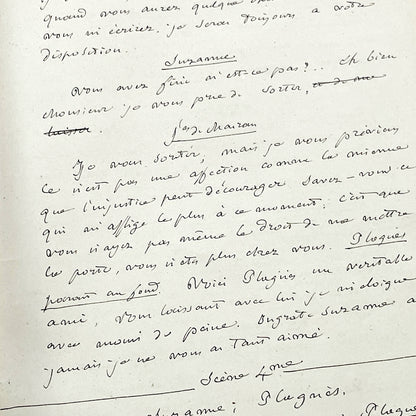 quand vous aurez quelque
vous m'écrirez, je serai toujours à votre
disposition.
Suzanne
Vous avez fini n'est-ce pas?.. Eh bien
monsieur je vous prie de sortir, et de me
laisser.
de Mairan
Je vais sortir, mais je vous préviens
ce n'est pas une affection comme la mienne
que l'injustice peut décourager. Savez-vous ce
qui m'afflige le plus à ce moment; c'est que
vous n'ayez pas même le droit de me mettre
la porte, vous n'êtes plus chez vous. Plugnès
paraît au fond. Voici Plugnès un véritable
ami, vous laissant avec lui je m'éloigne
avec moins de peine. Ingrate Suzanne
jamais je ne vous ai tant aimé.
Scène 4me
Suzanne; Plugnès.